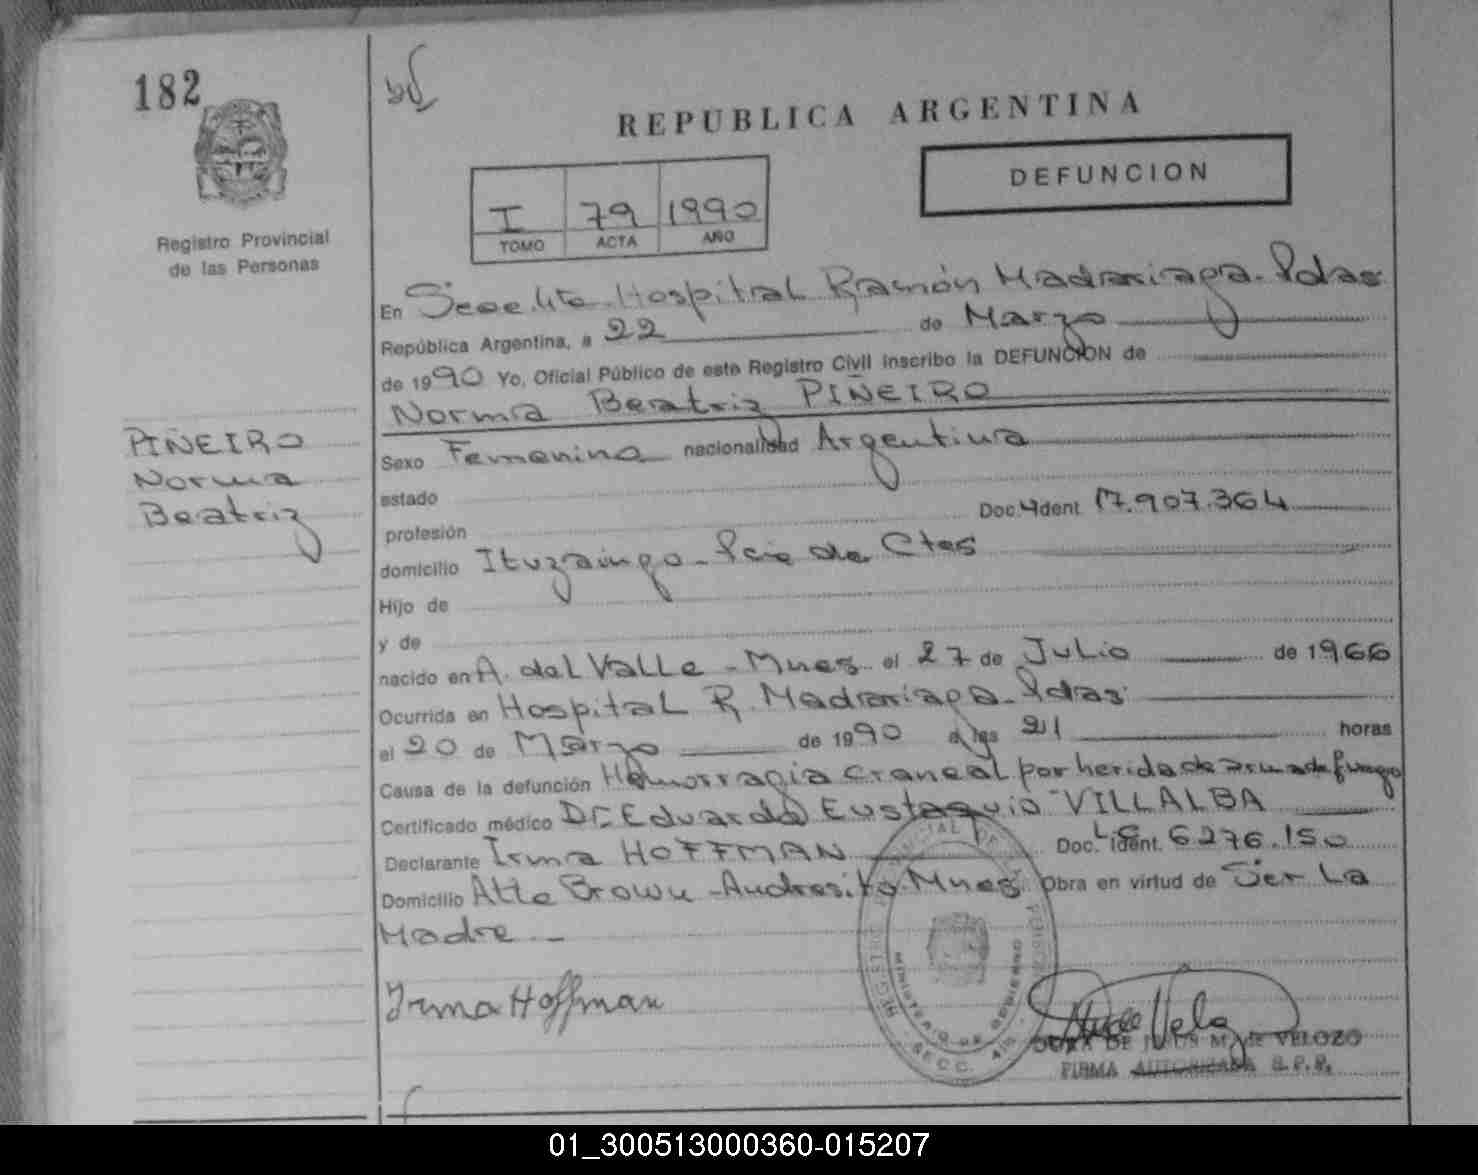 182
REPUBLICA ARGENTINA
DEFUNCION
I 79 1990
TOMO ACTA AÑO
Registro Provincial
de las Personas
En Hospital Ramón Madariaga - Pdas
República Argentina, a 22 de Marzo
de 1990 Yo, Oficial Público de este Registro Civil inscribo la DEFUNCION de
Norma Beatriz PIÑEIRO
PIÑEIRO
Norma
Beatriz
Sexo Femenino nacionalidad Argentina
estado
profesión Doc. Ident. 17.907.364
domicilio Ituzaingo - Pcia de Ctes
Hijo de
y de
nacido en A. del Valle - Mnes el 27 de Julio de 1966
Ocurrida en Hospital R. Madariaga - Pdas
el 20 de Marzo de 1990 a las 21 horas
Causa de la defunción Hemorragia craneal por herida de arma de fuego
Certificado médico Dr. Eduardo Eustaquio VILLALBA
Declarante Irma HOFFMAN Doc. L.C. Ident. 6276.150
Domicilio Alte Brown - Andresito - Mnes Obra en virtud de Ser La
Madre
Irma Hoffman
MINISTERIO DE GOBIERNO
VELOZO
FIRMA AUTORIZADA R.P.P.
01_300513000360-015207